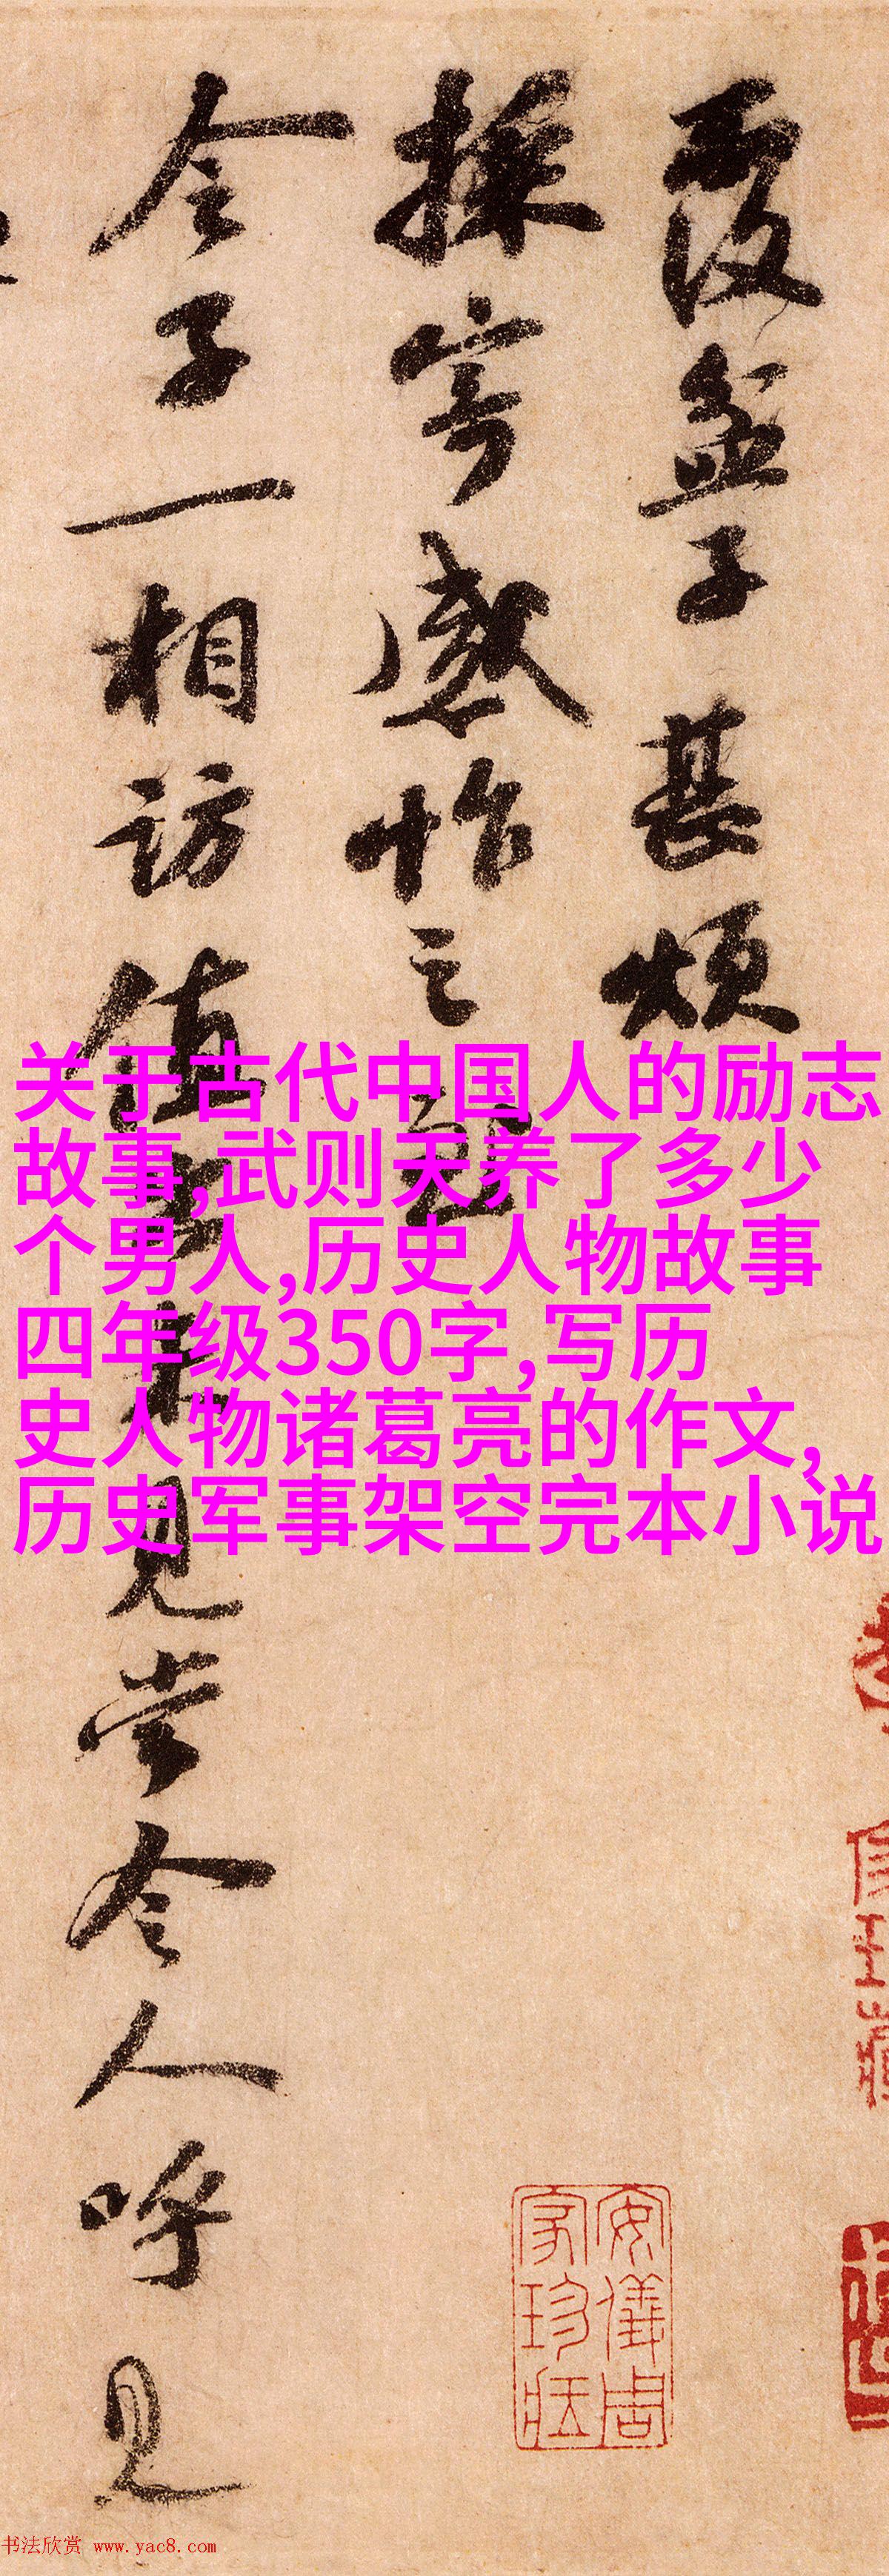 覆盆子甚煩
採寄感怍之至
令子一相訪值出未見當令人呼見
关于古代中国人的励志
故事,武则天养了多少
个男人,历史人物故事
四年级350字,写历
史人物诸葛亮的作文,
历史军事架空完本小说
安儀周
家珍藏
书法欣赏 www.yac8.com